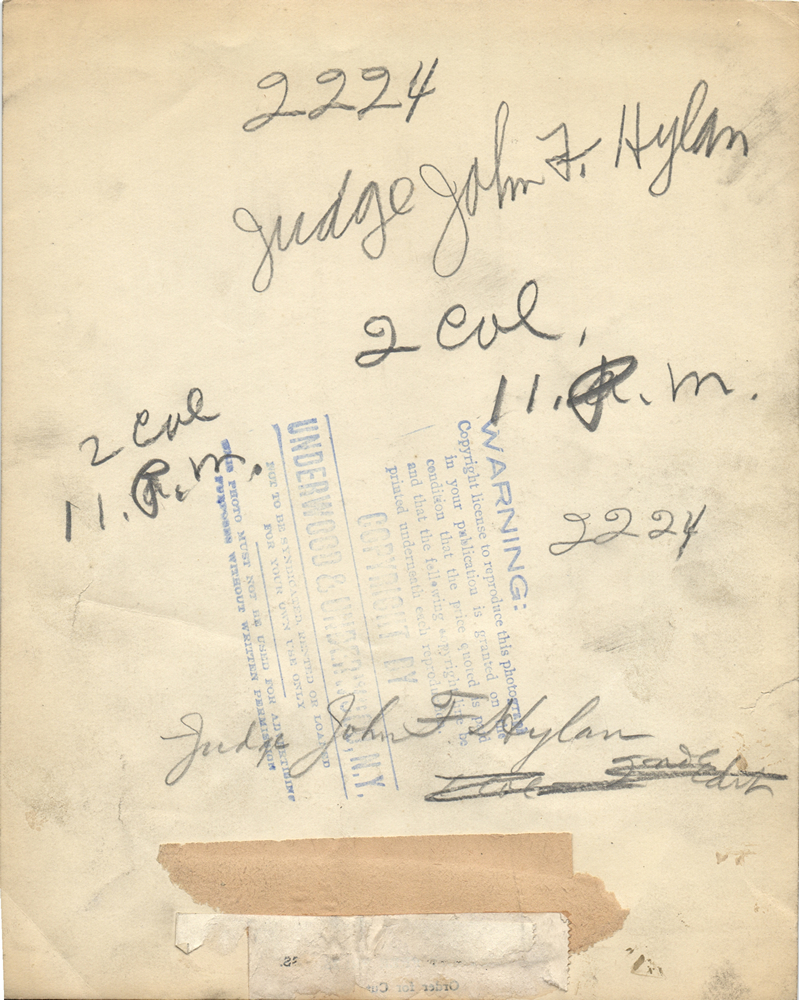 2224
Judge John F. Hylan
2 col,
11. P. M.
2 col
11. P. M.
2224
WARNING:
Copyright license to reproduce this photograph
in your publication is granted on the
condition that the price quoted is paid
and that the following copyright line be
printed underneath each reproduction
COPYRIGHT BY
UNDERWOOD & UNDERWOOD, N.Y.
NOT TO BE SYNDICATED, RENTED OR LOANED
FOR YOUR OWN USE ONLY
THIS PHOTO MUST NOT BE USED FOR ADVERTISING
PURPOSES WITHOUT WRITTEN PERMISSION
Judge John F Hylan
edit
Order for